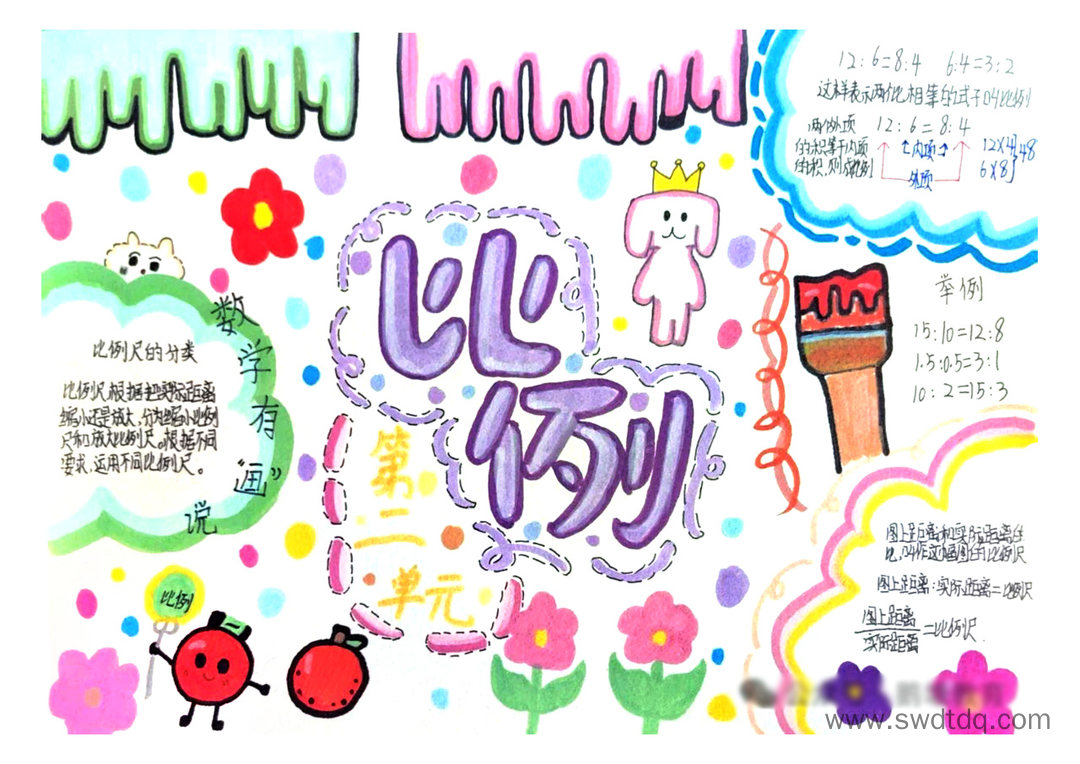 12:6=8:4 6:4=3:2
这样表示两个比相等的式子叫比例
两个外项
的积等于内项
的积,则成比例
12:6=8:4
内项
外项
12×4
6×8
48
比例
第二
单元
数学有“画”说
比例尺的分类
比例尺根据把实际距离
缩小还是放大,分为缩小比例
尺和放大比例尺。根据不同
要求,运用不同比例尺。
举例
15:10=12:8
1.5:0.5=3:1
10:2=15:3
图上距离和实际距离的
比,叫作这幅图的比例尺
图上距离:实际距离=比例尺
图上距离
实际距离
=比例尺.
比例
www.swdtdq.com